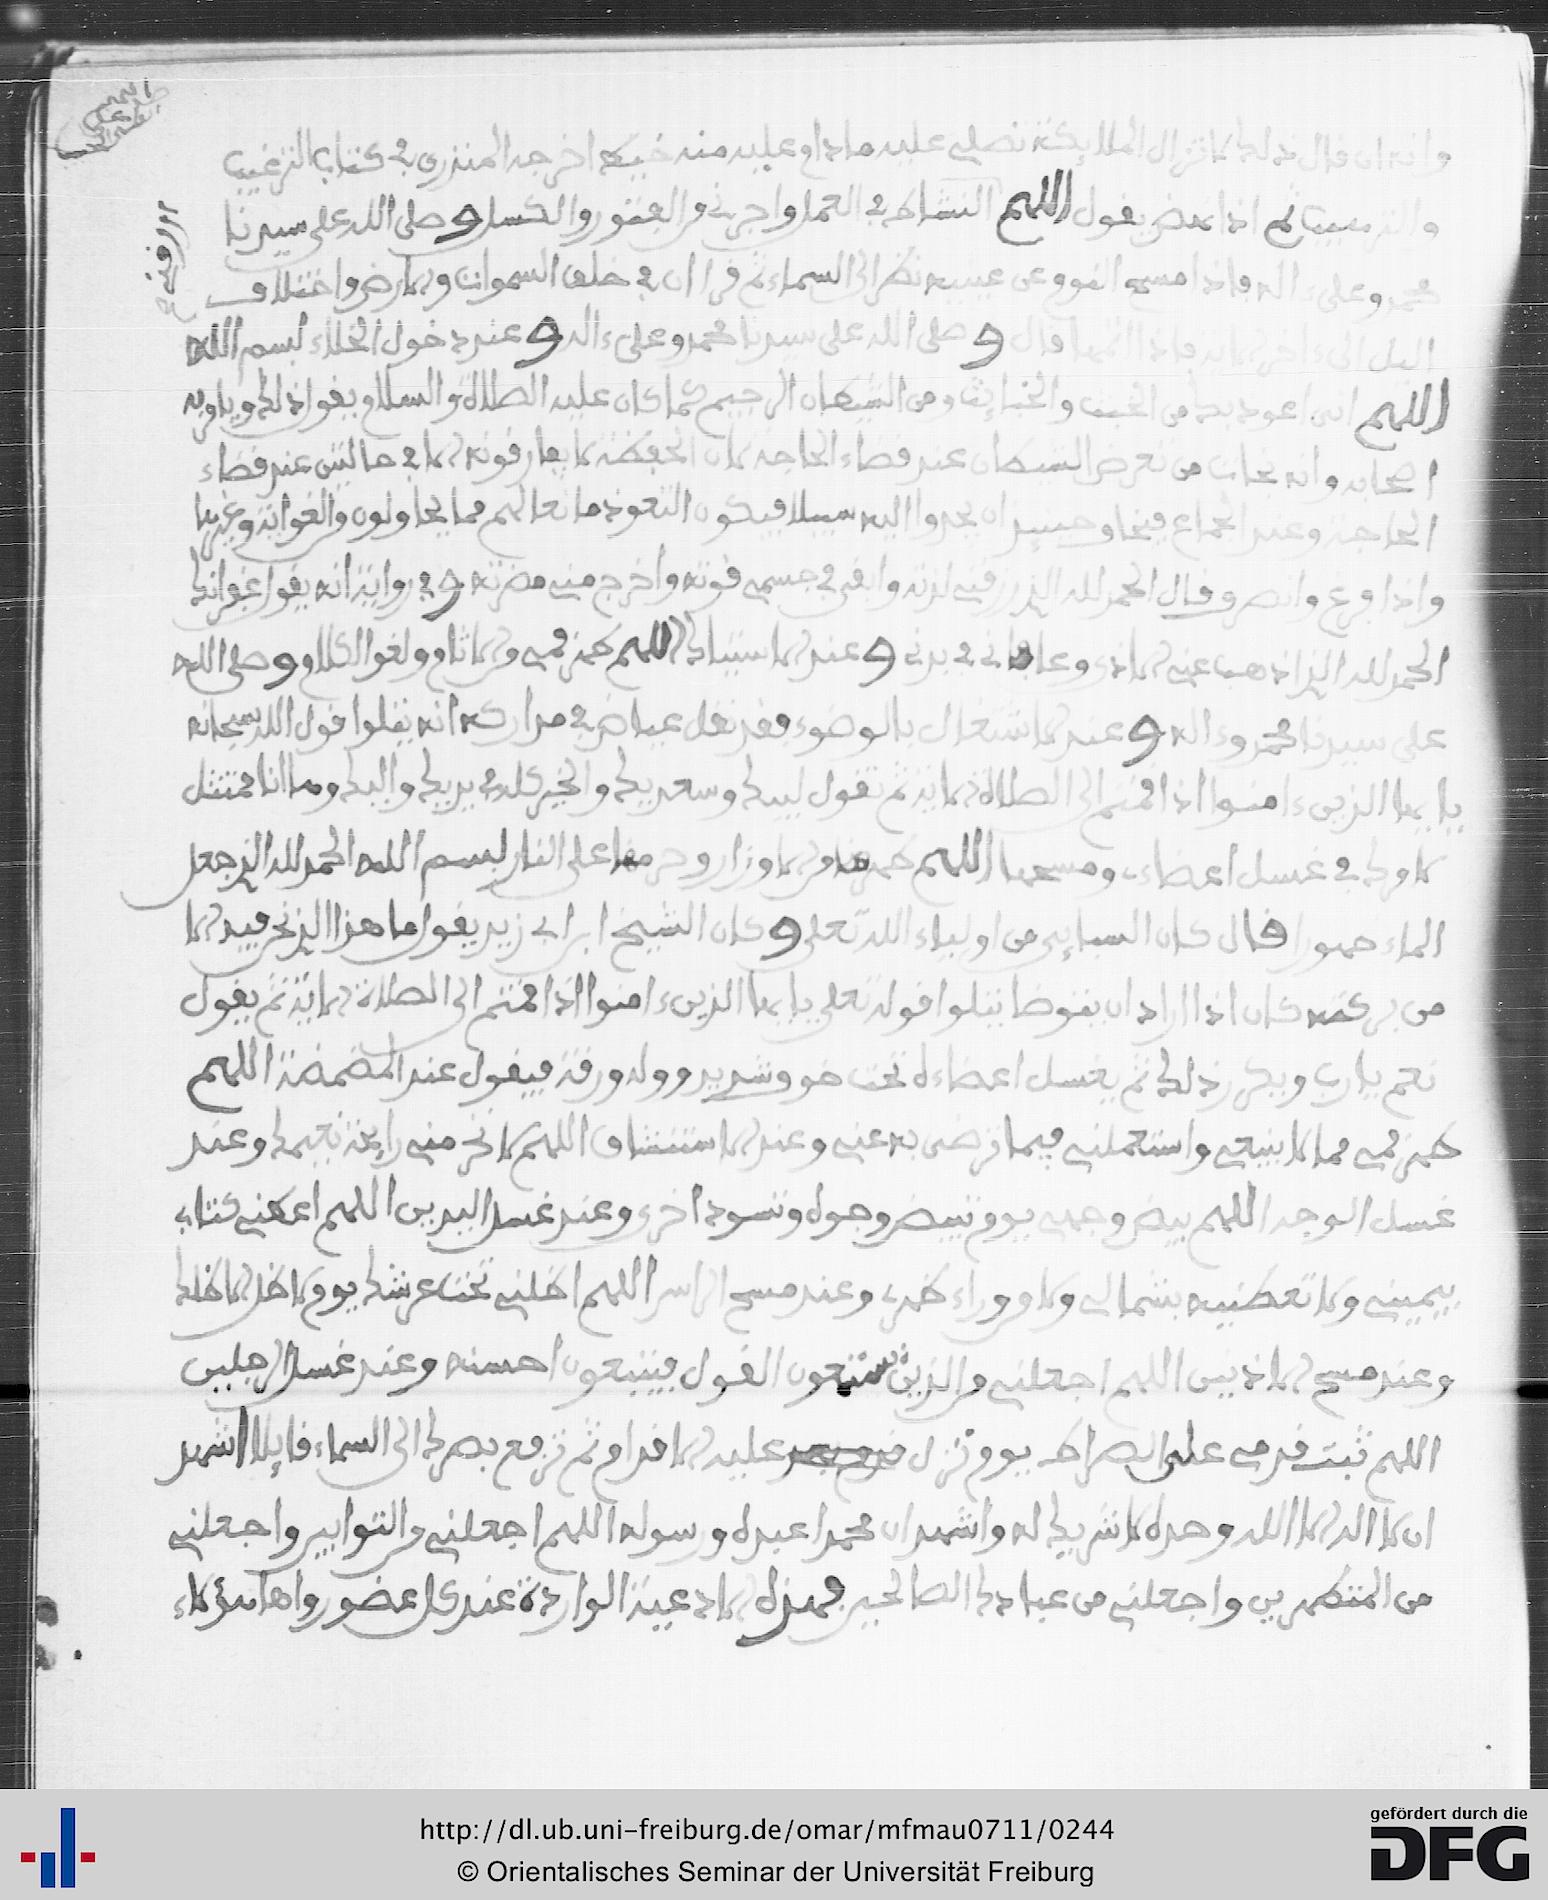 وانه ان قال ذلك لا تزال الملايكة تصلي عليه ما دام عليه منه اخرجه المنذري في كتاب الترغيب
والترهيب ثم اذا نهض يقول اللهم النشاط في العمل واجرني من الفتور والكسل وصلى الله على سيدنا
محمد وعلىءاله فاذا مسح النوم عن عينيه نظر الى السماء ثم قرا ان في خلق السموات والارض واختلاف
اليل الىءاخر الاية فاذا اتمها قال وصلى الله على سيدنا محمد وعلىءاله وعند دخول الخلاء لبسم الله
اللهم اني اعوذ بك من الخبث والخبايث ومن الشيطان الرجيم كما كان عليه الصلاة والسلام يقول ذلك ويامر به
اصحابه وانه يخاف من تعرض الشيطان عند قضاء الحاجة لان الحفظة لا يفارقونه الا في حالتين عند قضاء
الحاجة وعند الجماع فيخاف حينئذ ان يجدوا اليه سبيلا فيكون التعوذ مانعا لهم مما يحاولون من الغواية وغيرها
واذا فرغ وانصرف قال الحمد لله الذي رزقني لذته وابقى في جسمي قوته واخرج مني مضرته وفي رواية انه يقول غفرانك
الحمد لله الذي اذهب عني الاذى وعافاني في بدني وعند الاستياك اللهم طهر فمي من الاثام ولغو الكلام وصلى الله
على سيدنا محمد وءاله وعند الاشتغال بالوضوء فقد نقل عياض في مداركه انه يتلوا قول الله سبحانه
يايها الذينءامنوا اذا قمتم الى الصلاة الاية ثم تقول لبيك وسعديك والخير كله في يديك واليك وها انا ممتثل
لامرك في غسل اعضاءي ومسحها اللهم طهرها من الاوزار وحرمها على النار لبسم الله الحمد لله الذي جعل
الماء طهورا قال كان السبايي من اولياء الله تعلى وكان الشيخ ابن ابي زيد يقول ما هذا الذي نحن فيه الا
من بركته كان اذا اراد ان يتوضا يتلوا قوله تعلى يايها الذينءامنوا اذا قمتم الى الصلاة الاية ثم يقول
نعم يارب ويكرر ذلك ثم يغسل اعضاءه تحت خوف شديد ووله ورقة فيقول عند المضمضة اللهم
طهر فمي مما لا ينبغي واستعملني فيما ترضى به عني وعند الاستنشاق اللهم لا تحرمني رايحة نعيمك وعند
غسل الوجه اللهم بيض وجهي يوم تبيض وجوه وتسود اخرى وعند غسل اليدين اللهم اعطني كتابي
بيميني ولا تعطنيه بشمالي ولا من وراء ظهري وعند مسح الراس اللهم اظلني تحت عرشك يوم لا ظل الا ظلك
وعند مسح الاذنين اللهم اجعلني من الذين يستمعون القول فيتبعون احسنه وعند غسل الرجلين
اللهم ثبت قدمي على الصراط يوم تزل عليه الاقدام ثم ترفع بصرك الى السماء قايلا اشهد
ان لا اله الا الله وحده لا شريك له واشهد ان محمدا عبده ورسوله اللهم اجعلني من التوابين واجعلني
من المتطهرين واجعلني من عبادك الصالحين فهذه الادعية الواردة عند كل عضو رواها هؤلاء
http://dl.ub.uni-freiburg.de/omar/mfmau0711/0244
© Orientalisches Seminar der Universität Freiburg
gefördert durch die
DFG